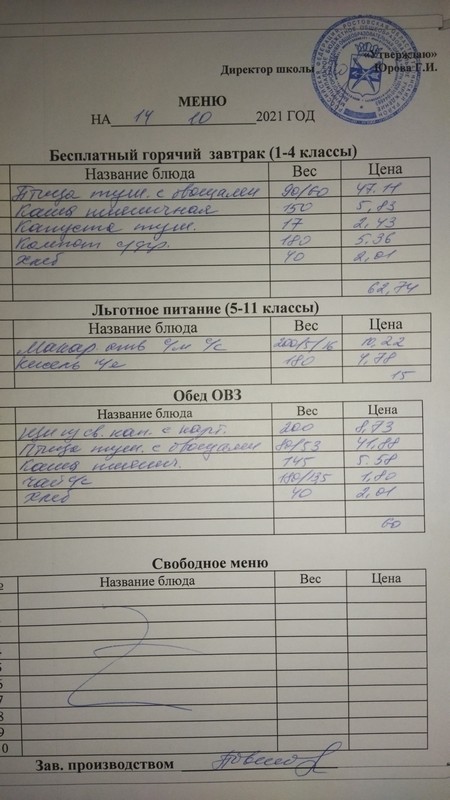 «Утверждаю»
Директор школы Юрова Г.И.
МЕНЮ
НА 14 10 2021 ГОД
Бесплатный горячий завтрак (1-4 классы)
Название блюда Вес Цена
Птица туш. с овощами 90/60 47.11
Каша пшеничная 150 5,83
Капуста туш. 17 2,43
Компот с/фр. 180 5.36
Хлеб 40 2,01
62,74
Льготное питание (5-11 классы)
Название блюда Вес Цена
Макар отв с/м с/с 200/5/16 10,22
кисель 180 4,78
15
Обед ОВЗ
Название блюда Вес Цена
Щи из св. кап. с карт. 200 8,73
Птица туш. с овощами 80/53 41,88
Каша пшенич. 145 5.58
чай с/с 180/13,5 1,80
Хлеб 40 2,01
60
Свободное меню
Название блюда Вес Цена
7
8
9
0
Зав. производством